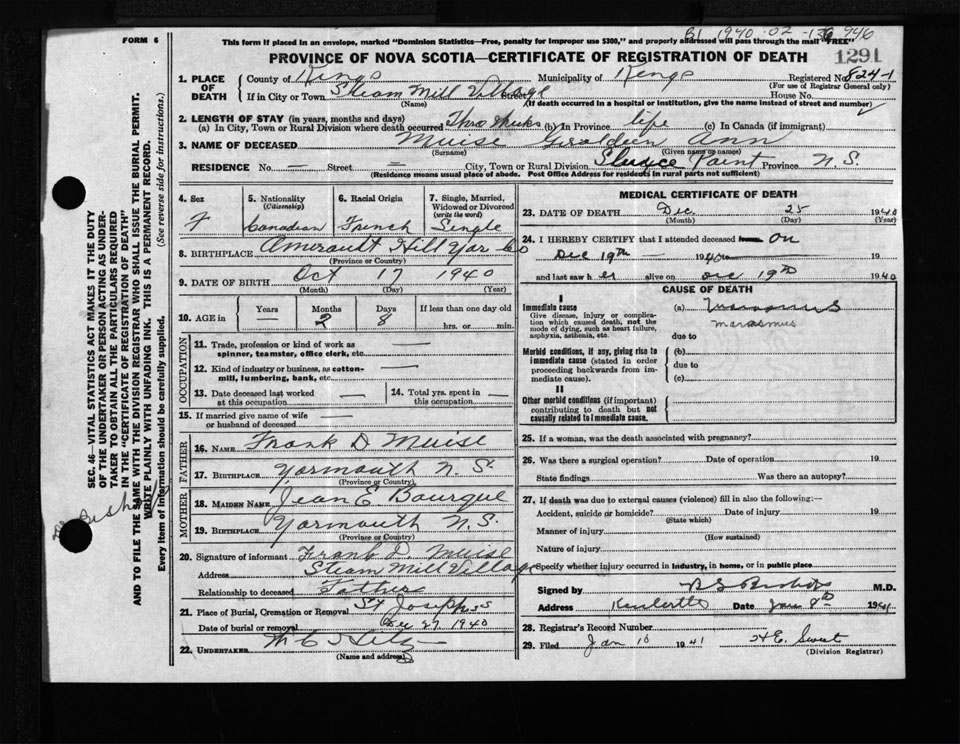 FORM 6
B1 1940-02-13 946
This form if placed in an envelope, marked "Dominion Statistics—Free, penalty for improper use $300," and properly addressed will pass through the mail "FREE"
PROVINCE OF NOVA SCOTIA—CERTIFICATE OF REGISTRATION OF DEATH
1291
1. PLACE OF DEATH County of Kings Municipality of Kings Registered No. 824-1
(For use of Registrar General only)
If in City or Town Steam Mill Village Street House No.
(Name) (If death occurred in a hospital or institution, give the name instead of street and number)
2. LENGTH OF STAY (in years, months and days)
(a) In City, Town or Rural Division where death occurred Three Weeks (b) In Province life (c) In Canada (if immigrant)
3. NAME OF DECEASED Muise Ann
(Surname) (Given name or names)
RESIDENCE No. — Street — City, Town or Rural Division Sluice Point Province N.S.
(Residence means usual place of abode. Post Office Address for residents in rural parts not sufficient)
4. Sex F
5. Nationality (Citizenship) Canadian
6. Racial Origin French
7. Single, Married, Widowed or Divorced (write the word) Single
8. BIRTHPLACE Amirault Hill Yar Co
(Province or Country)
9. DATE OF BIRTH Oct 17 1940
(Month) (Day) (Year)
10. AGE in Years — Months 2 Days 8 If less than one day old hrs. or min.
OCCUPATION
11. Trade, profession or kind of work as spinner, teamster, office clerk, etc. —
12. Kind of industry or business, as cotton-mill, lumbering, bank, etc. —
13. Date deceased last worked at this occupation —
14. Total yrs. spent in this occupation —
15. If married give name of wife or husband of deceased —
FATHER
16. NAME Frank D Muise
17. BIRTHPLACE Yarmouth N.S.
(Province or Country)
MOTHER
18. MAIDEN NAME Jean E Bourque
19. BIRTHPLACE Yarmouth N.S.
(Province or Country)
20. Signature of informant Frank D. Muise
Address Steam Mill Village
Relationship to deceased Father
21. Place of Burial, Cremation or Removal St Josephs
Date of burial or removal Dec 27 1940
22. UNDERTAKER W C
(Name and address)
MEDICAL CERTIFICATE OF DEATH
23. DATE OF DEATH Dec. 25 1940
(Month) (Day) (Year)
24. I HEREBY CERTIFY that I attended deceased from on
Dec 19th — 1940 19
and last saw her alive on Dec 19th 1940
CAUSE OF DEATH
I
Immediate cause (a) Marasmus
Give disease, injury or complication which caused death, not the mode of dying, such as heart failure, asphyxia, asthenia, etc.
marasmus
due to
Morbid conditions, if any, giving rise to immediate cause (stated in order proceeding backwards from immediate cause).
(b)
due to
(c)
II
Other morbid conditions (if important) contributing to death but not causally related to immediate cause.
25. If a woman, was the death associated with pregnancy?
26. Was there a surgical operation? Date of operation 19
State findings Was there an autopsy?
27. If death was due to external causes (violence) fill in also the following:—
Accident, suicide or homicide? Date of injury 19
(State which)
Manner of injury
(How sustained)
Nature of injury
Specify whether injury occurred in industry, in home, or in public place
Signed by M.D.
Address Kentville Date Jan 8th 1941
28. Registrar's Record Number
29. Filed Jan 10 1941 H E. Sweet
(Division Registrar)
SEC. 46—VITAL STATISTICS ACT MAKES IT THE DUTY
OF THE UNDERTAKER OR PERSON ACTING AS UNDER-
TAKER TO OBTAIN ALL THE PARTICULARS REQUIRED
IN THE "CERTIFICATE OF REGISTRATION OF DEATH"
AND TO FILE THE SAME WITH THE DIVISION REGISTRAR WHO SHALL ISSUE THE BURIAL PERMIT.
WRITE PLAINLY WITH UNFADING INK. THIS IS A PERMANENT RECORD.
Every item of information should be carefully supplied. (See reverse side for instructions.)